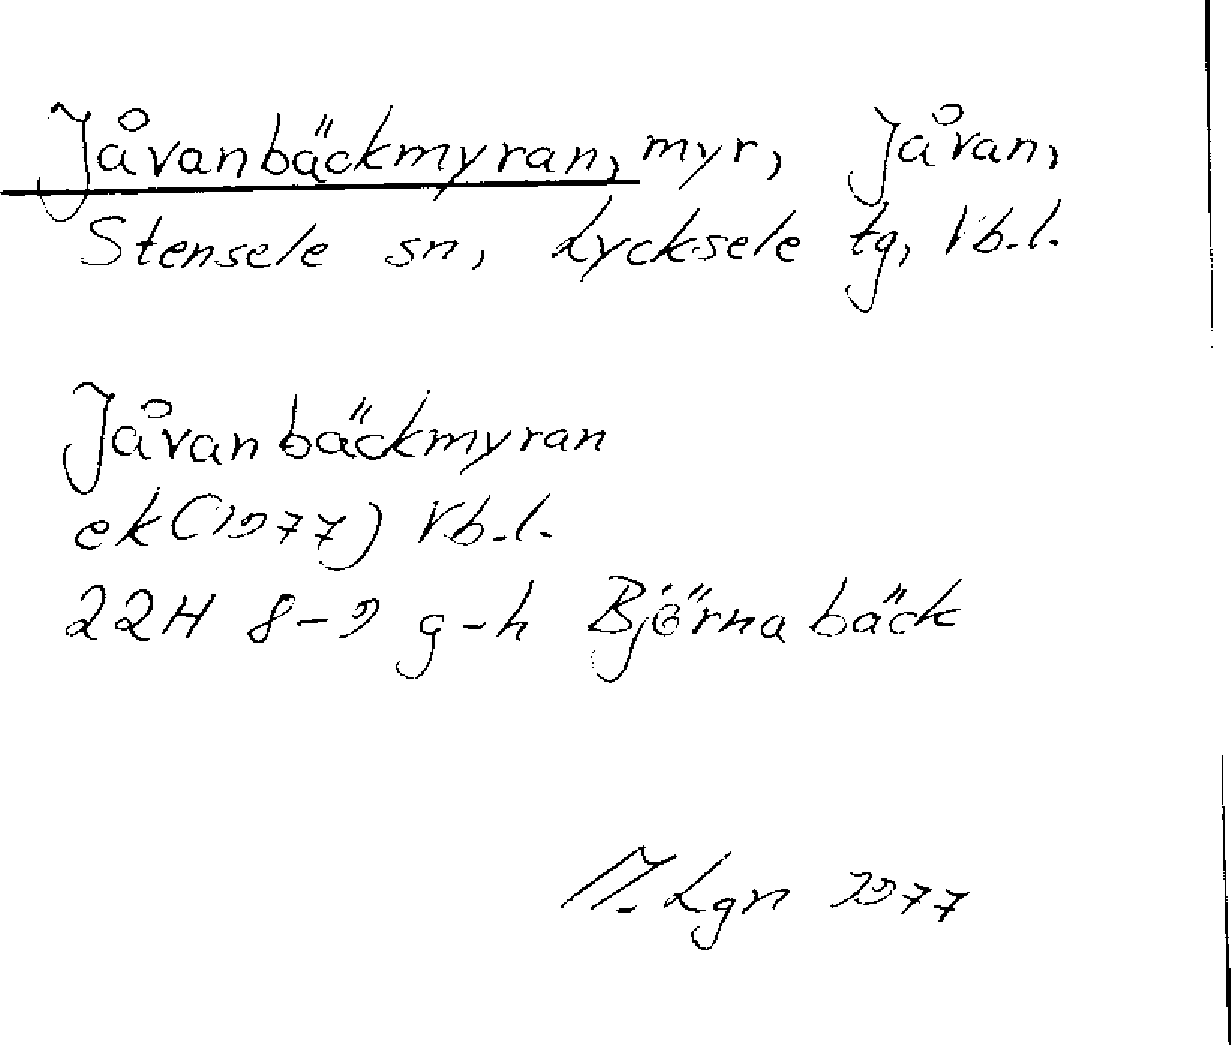 Jåvanbäckmyran, myr, Jåvan,
Stensele sn, Lycksele tg, Vb.l.
Jåvanbäckmyran
ek (1977) Vb.l.
22H 8-9 g-h Björnabäck
M. Lgn 1977